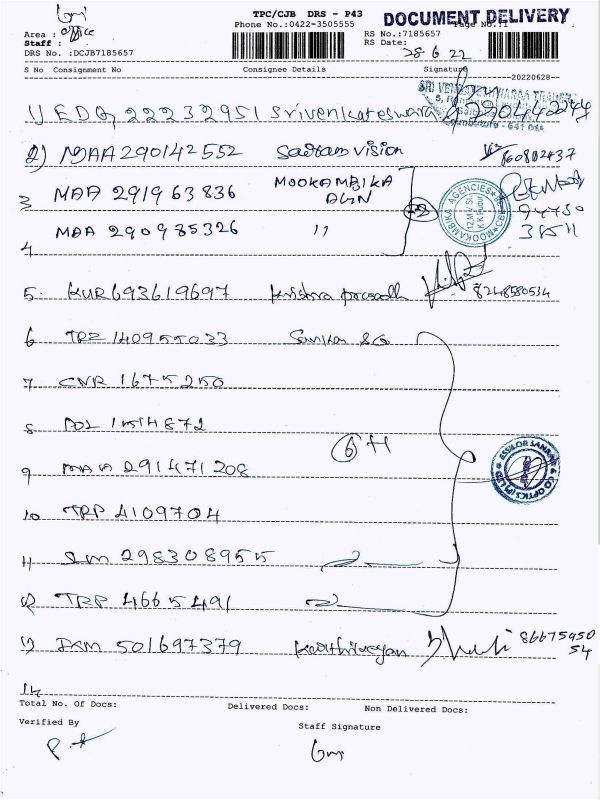 TPC/CJB DRS - P43 DOCUMENT DELIVERY
Phone No.:0422-3505555 Page No.:1
Area : office RS No.:7185657
Staff : RS Date:
DRS No. :DCJB7185657 28 6 22
S No Consignment No Consignee Details Signature
20220628
1) EDQ 22232951 Srivenkateswara
2) MAA 290142552 Sairam vision
3 MAA 291963836 MOOKAMBIKA AGN 94430
4 MAA 290985326 " 38511
MOOKAMBIKA AGENCIES
5. KUR693619697 Krishna prasadh 8248580534
6 TRZ 140955033 Sankar & Co
7 CNR 1675250
8 DDL 1514872
9 MAA 291471208
ESSILOR SANKAR & CO OPTICS (P) LTD
10 TRP 4109704
11 SLM 298308955
12 TRP 4665491
13 IXM 501697379 Karthikeyan 8667595054
14
Total No. Of Docs: Delivered Docs: Non Delivered Docs:
Verified By Staff Signature